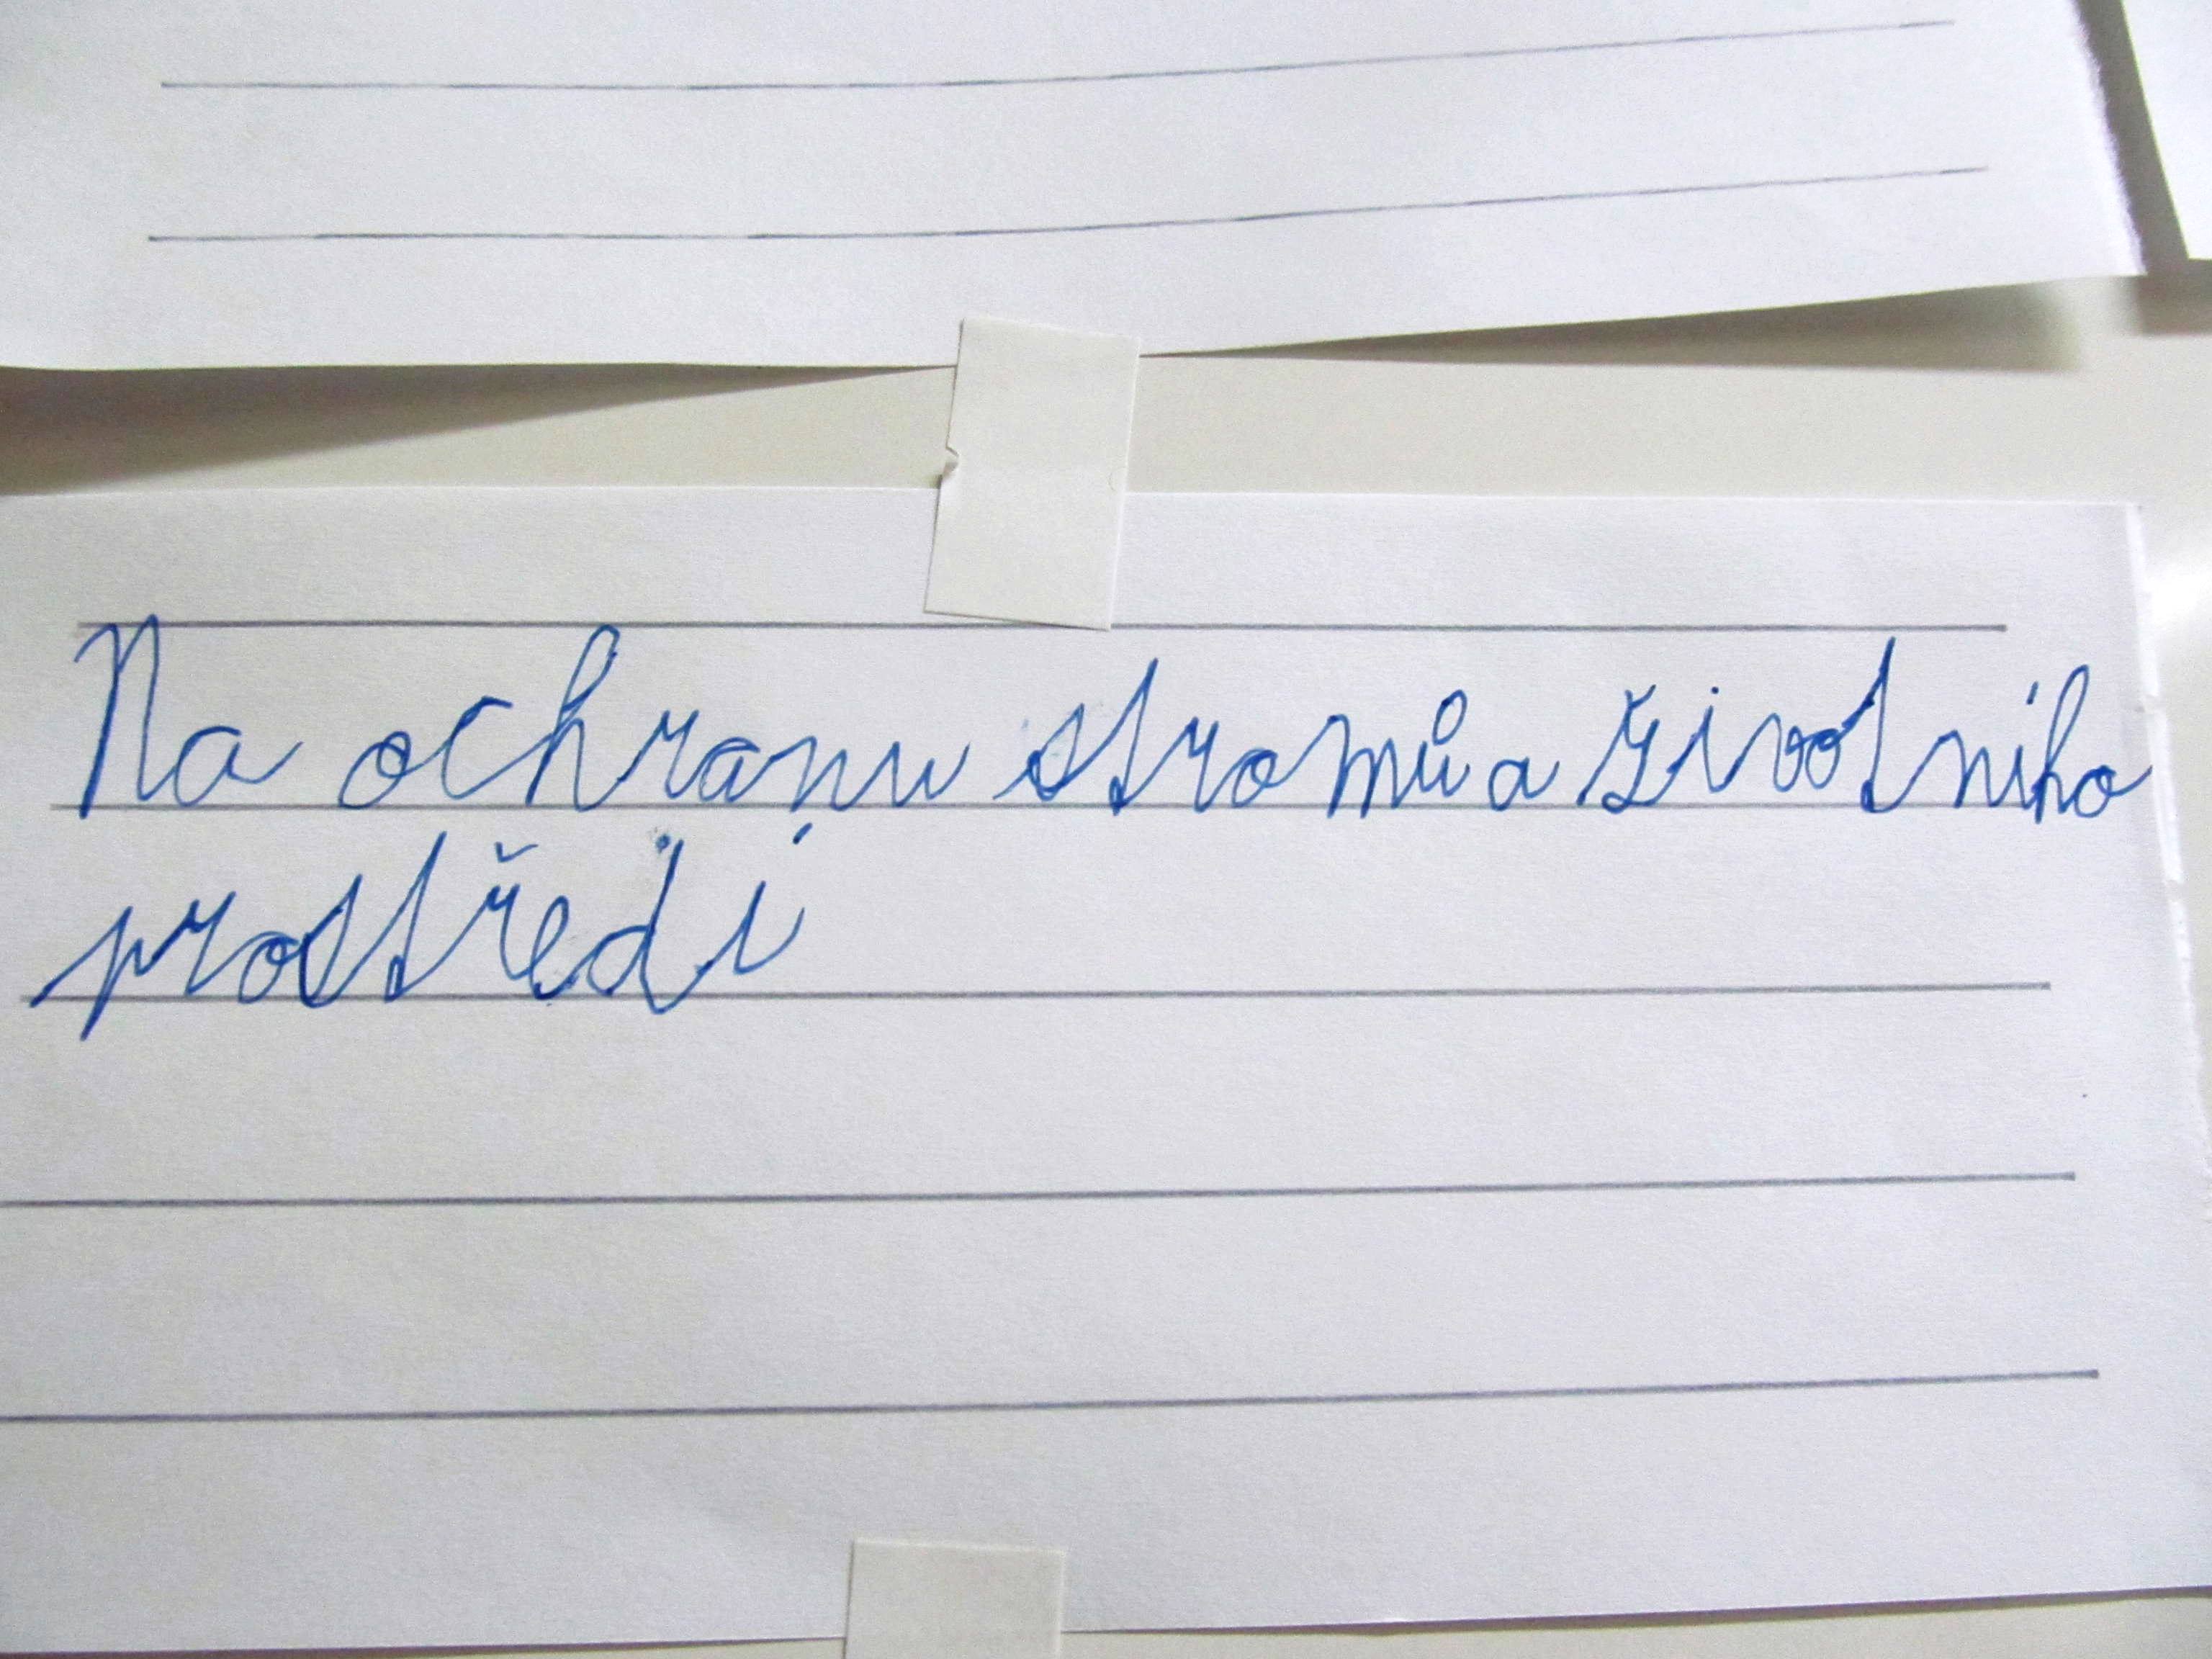 Na ochranu stromů a životního
prostředí